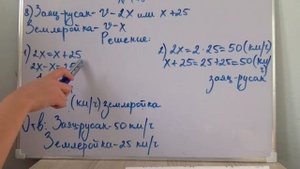 8) Заяц-русак - v - 2x или x+25
Землеройка - v - x
Решение:
1) 2x = x+25
2x-x=25
(км/ч) землеройка
2) 2x = 2·25=50(км/ч)
x+25=25+25=50(км/ч)
заяц-русак
Отв: Заяц-русак-50 км/ч
Землеройка-25 км/ч